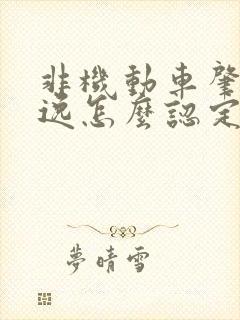 非機動車肇
逸怎麼認定
夢晴雪